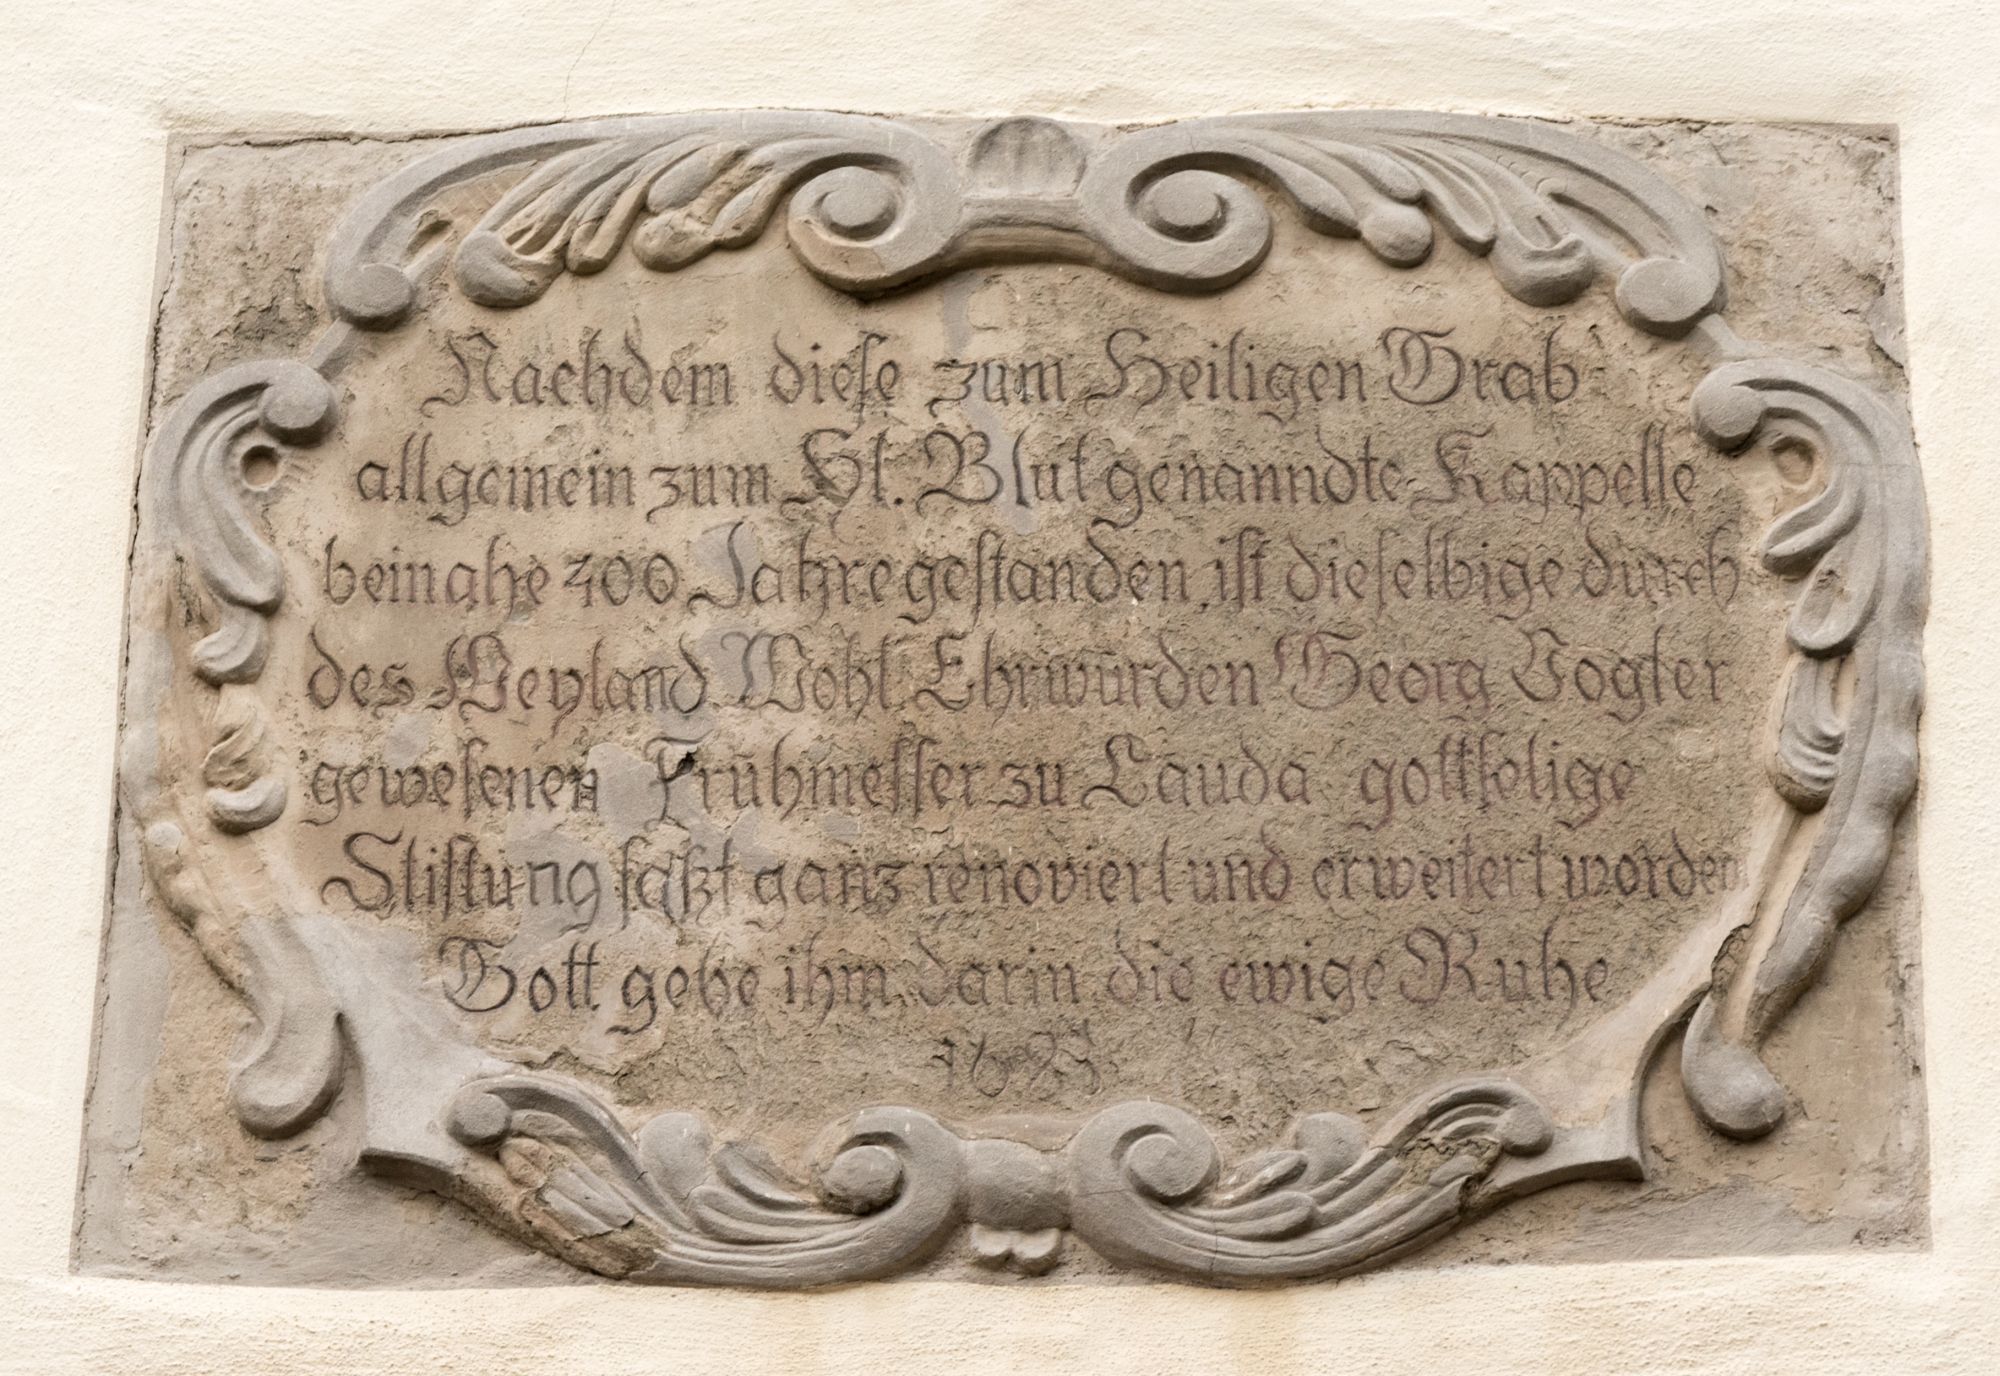 Nachdem diese zum Heiligen Grab
allgemein zum Hl. Blut genanndte Kappelle
beinahe 400 Jahre gestanden, ist dieselbige durch
des Weyland Wohl Ehrwürden Georg Vogter
gewesenen Frühmesser zu Lauda gottselige
Stiftung faßt ganz renoviert und erweitert worden
Gott gebe ihm darin die ewige Ruhe
1693